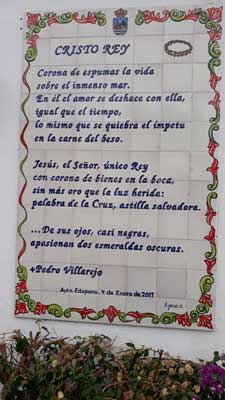 CRISTO REY
Corona de espumas la vida
sobre el inmenso mar.
En él el amor se deshace con ella,
igual que el tiempo,
lo mismo que se quiebra el ímpetu
en la carne del beso.
Jesús, el Señor, único Rey
con corona de bienes en la boca,
sin más oro que la luz herida:
palabra de la Cruz, astilla salvadora.
...De sus ojos, casi negras,
apasionan dos esmeraldas oscuras.
+Pedro Villarejo
Ayto. Estepona, 4 de Enero de 2017